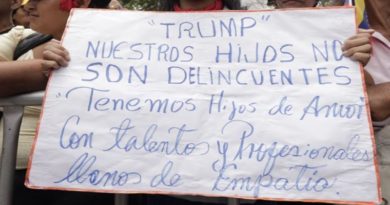 "TRUMP"
NUESTROS HIJOS NO
SON DELINCUENTES
"Tenemos Hijos de Amor
Con talentos y Profesionales
llenos de Empatia.